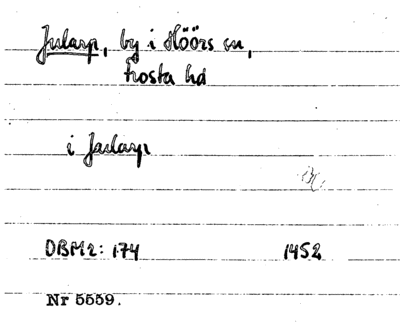 Jularp, by i Höörs sn,
Frosta hd
i Jularp
DBM2: 174 1452
Nr 5559.